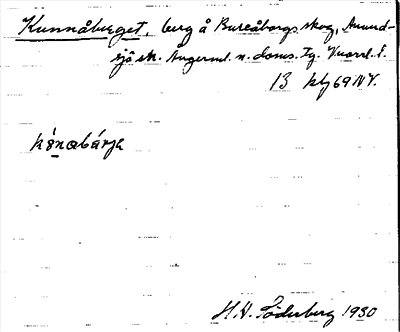 Kunnåberget, berg å Bureåborgs skog, Anund-
sjö sn. Ångerml. n. doms. tg. Vuorrl. f.
13 kbj 69 NV.
kȯnabárja
H.V. Söderberg 1930